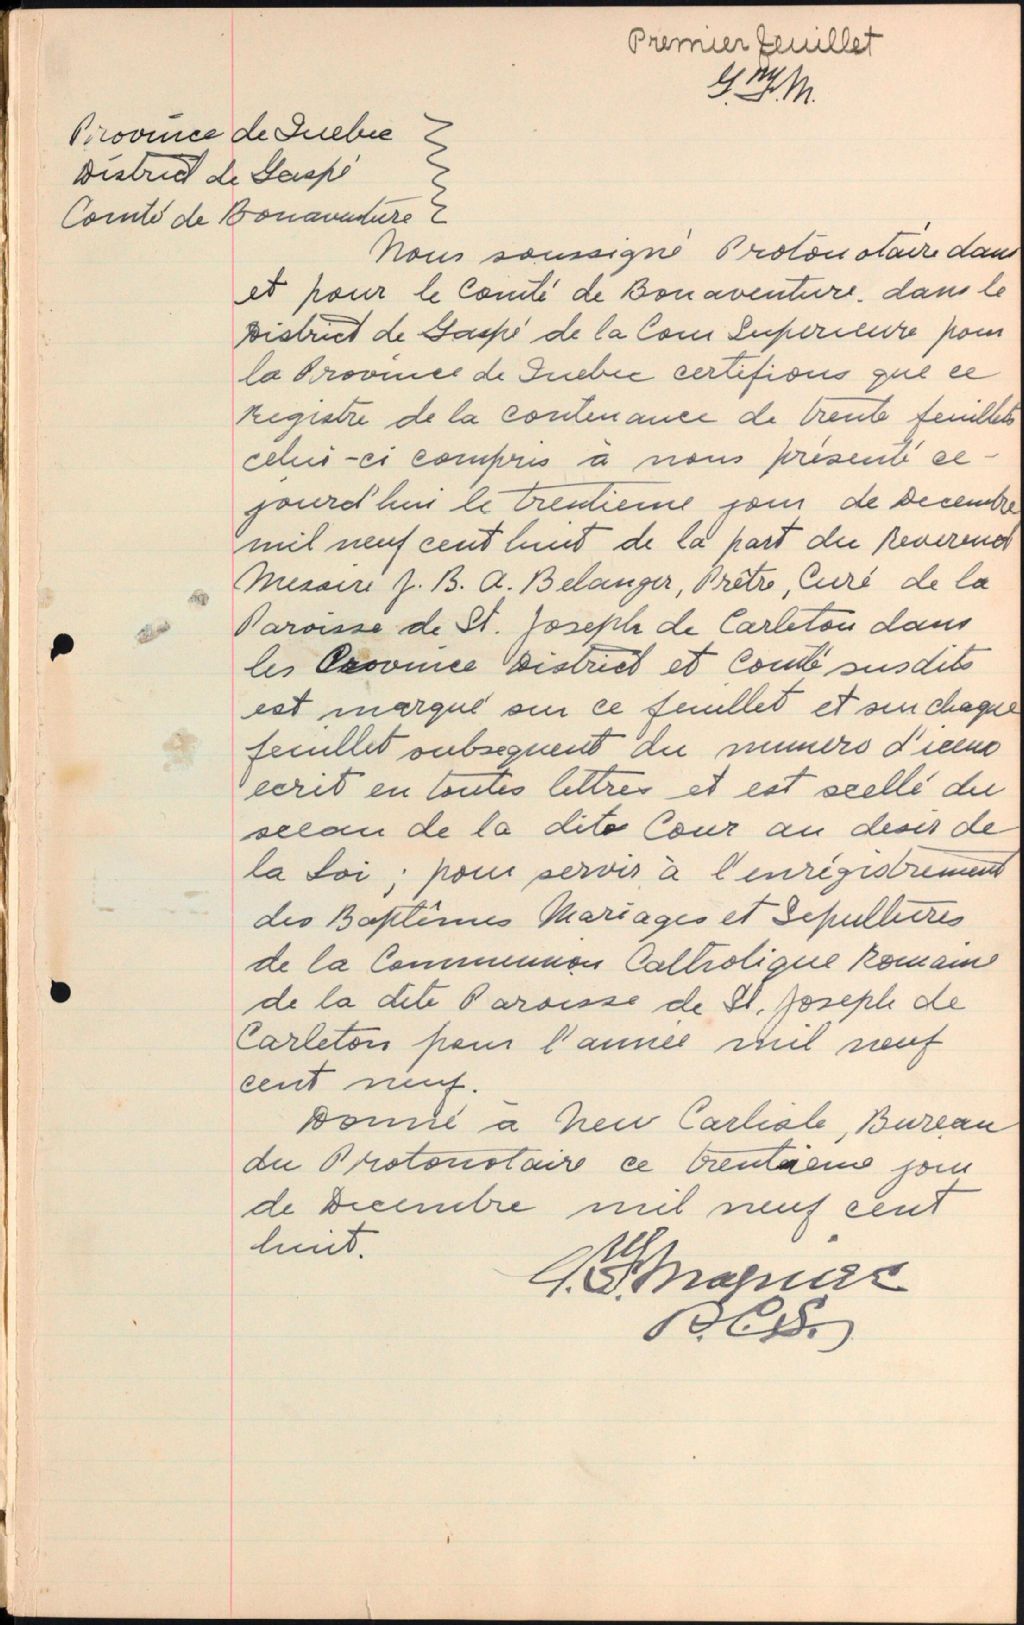 Premier feuillet
G. M.
Province de Quebec
District de Gaspé
Comté de Bonaventure
Nous soussigné Protonotaire dans
et pour le Comté de Bonaventure. dans le
District de Gaspé de la Cour Superieure pour
la Province de Quebec certifions que ce
Registre de la contenance de trente feuillets
celui-ci compris à nous présenté ce-
jourd'hui le trentieme jour de Decembre
mil neuf cent huit de la part du Reverend
Messire J. B. A. Belanger, Prêtre, Curé de la
Paroisse de St. Joseph de Carleton dans
les Province District et Comté susdits
est marqué sur ce feuillet et sur chaque
feuillet subsequent du numero d'iceux
ecrit en toutes lettres et est scellé du
sceau de la dite Cour au desir de
la Loi ; pour servir à l'enrégistrement
des Baptêmes Mariages et Sepultures
de la Communion Catholique Romaine
de la dite Paroisse de St. Joseph de
Carleton pour l'année mil neuf
cent neuf.
Donné à New Carlisle, Bureau
du Protonotaire ce trentieme jour
de Decembre mil neuf cent
huit.
P.C.S.